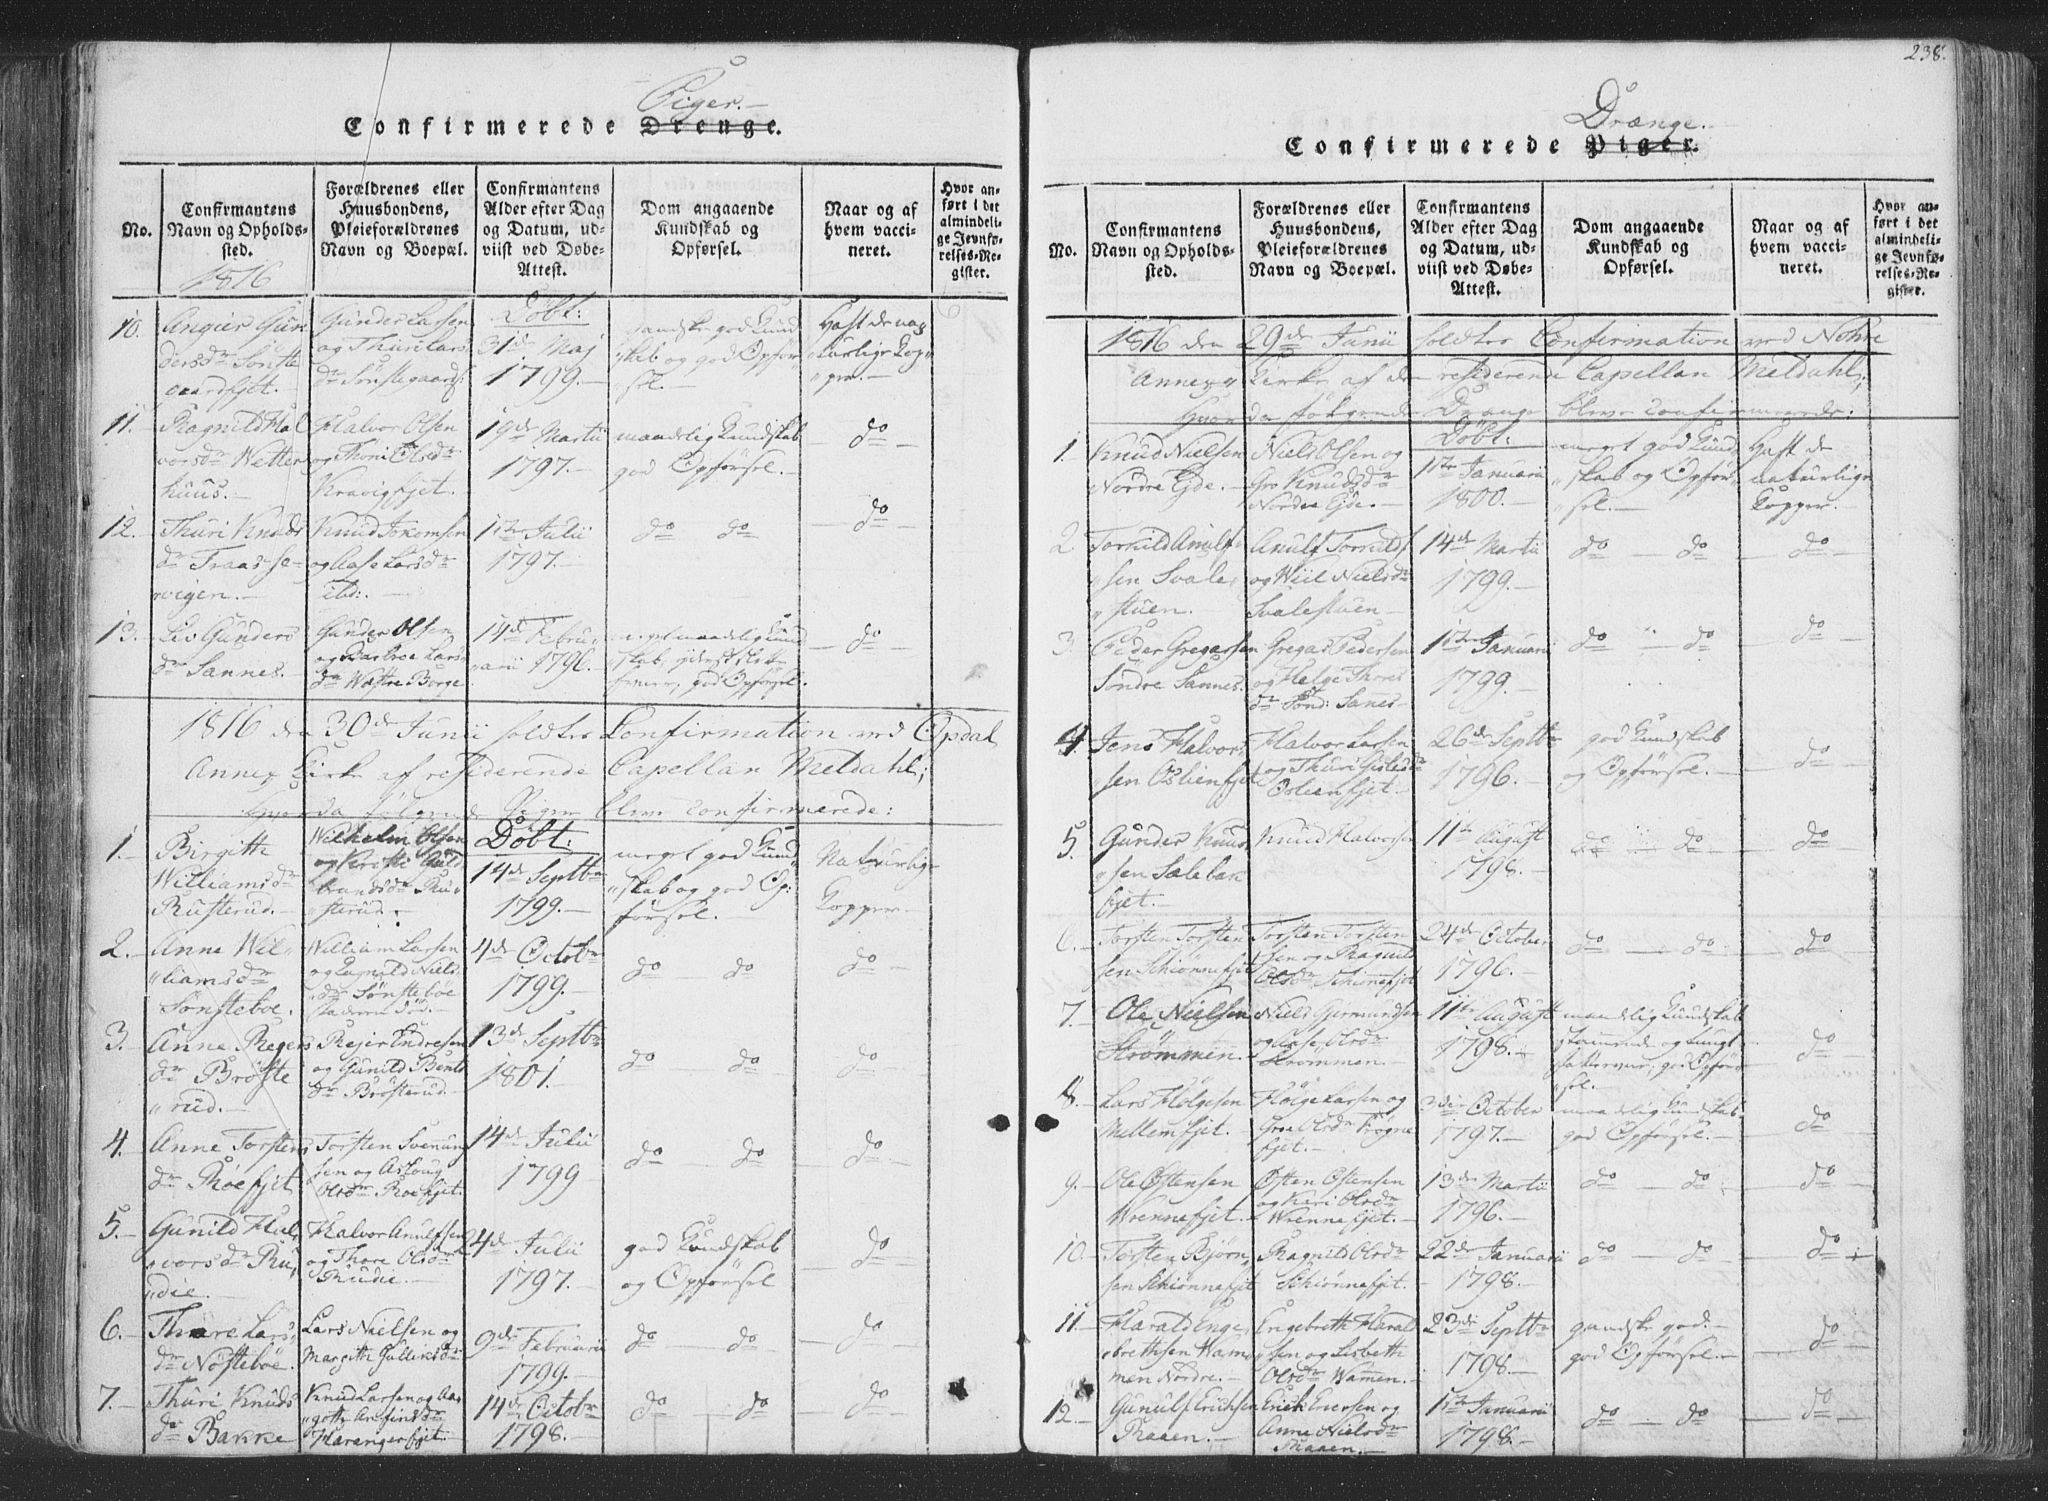 Piger.
Confirmerede Drenge.
No.
Confirmantens
Navn og Opholds-
sted.
1816
Forældrenes eller
Huusbondens,
Pleieforældrenes
Navn og Boepæl.
Confirmantens
Alder efter Dag
og Datum, ud-
viist ved Døbe-
Attest.
Dom angaaende
Kundskab og
Opførsel.
Naar og af
hvem vacci-
neret.
Hvor an-
ført i det
almindeli-
ge Jevnfø-
relses-Re-
gister.
10.
Gunder Larsen
Døbt:
31de Maj
1799.
11.
Ragnild Hal
vorsdr Wetter
huus.
Halvor Olsen
og Thoni Olsdr
Kravigfjet.
19de Martii
1797.
maadelig Kundskab
god Opførsel.
do
12.
Thuri Knuds
dr Traasse-
vigen.
og Aase Larsdr
ibid:
1ste Julii
1797.
do do
do
13.
Liv Gunders
dr Sannes.
Gunder Olsen
dr Wæstre Borge
14de Febru-
arii 1796.
god Opførsel.
do
1816 den 30de Junii holdtes Confirmation ved Opdal
Annex Kirke af residerende Capellan Meldahl;
Hvor da følgende Piger bleve confirmerede:
1.
Birgitte
Williamsdr
Rusterud.
Wilhelm Olsen
Døbt:
14de Septbr
1799.
meget god Kund
skab og god Op:
førsel.
Naturlige
Kopper.
2.
Anne Wil-
liamsdr
Sønsteboe.
William Larsen
og Ragnild Niels
dr Sønsteboe
4de Octobr
1799.
do do
do
3.
Anne Regers
dr Brøste
rud.
Rejer Endresen
og Gunild Bents
dr Brøsterud.
13de Septbr
1801.
do do
do
4.
Anne Torstens
dr Roefjet
Torsten Svenun
sen og Asloug
Olsdr Roefjet.
14de Julii
1799
do do
do
5.
Gunild Hal
vorsdr Ru
die.
Halvor Anulfsen
og Thore Olsdr
Rudie.
4de Julii
1797.
god Kundskab
og Opførsel
do
6.
Thore Lars
dr Nøsteboe.
Lars Nielsen og
Margith Gulliksdr
9de Februarii
1799.
do do
do
7.
Thuri Knuds
dr Bakke
Knud Larsen og Aa
Harangerfjet.
14de Octobr
1798.
do do
do
238.
Drænge.
Confirmerede Piger.
No.
Confirmantens
Navn og Opholds-
sted.
Forældrenes eller
Huusbondens,
Pleieforældrenes
Navn og Boepæl.
Confirmantens
Alder efter Dag
og Datum, ud-
viist ved Døbe-
Attest.
Dom angaaende
Kundskab og
Opførsel.
Naar og af
hvem vacci-
neret.
Hvor an-
ført i det
almindeli-
ge Jevnfø-
relses-Re-
gister.
1816 den 29de Junii holdtes Confirmation ved Nohre
Annex Kirke af den residerende Capellan Meldahl;
Hvor da følgende Drænge bleve confirmerede:
1.
Knud Nielsen
Nordre Ejde.
Niels Olsen og
Gro Knudsdr
Nordre Ejde.
Døbt:
1ste Januarii
1800.
meget god Kund
skab og Opfør
sel.
Haft de
naturlige
Kopper.
2
Torkild Anulf
sen Svale
stuen.
Anulf Torkilds
og Wiil Nielsdr
Svalestuen
14de Martii
1799.
do do
do
3.
Peder Gregarsen
Søndre Sannes.
Gregar Pedersen
og Helge Thores
dr Sønd: Sanes
1ste Januarii
1799.
do do
do
4.
Jens Halvor
sen Oslienfjet
Halvor Larsen
Oslienfjet.
26de Septbr
1796.
god Kundskab
og Opførsel.
do
5.
Gunder Knud
fjet.
Knud Halvorsen
11te August
1798.
do do
do
6.
Torsten Torsten
sen Schiønnefjet
Torsten Torsten
sen og Ragnild
Olsdr Schiønnefjet
24de October
1796.
do do
do
7.
Ole Nielsen
Strømmen.
Niels Germundsen
og Aase Olsdr
Strømmen.
11te August
1798.
maadelig Kundskab
do
8.
Lars Holgesen
Mellemfjet.
Holge Larsen og
Groe Olsdr Frøgne
fjet.
3die October
1797.
maadelig Kundskab
god Opførsel.
do
9.
Ole Østensen
Wrennefjet.
Østen Østensen
og Kari Olsdr
Wrennefjet.
13de Martii
1796.
do do
do
10.
Torsten Bjørn
sen Schiønnefjet
Ragnild Olsdr
Schiønnefjet.
22de Januarii
1798.
do do
do
11.
Harald Enge
brethsen Wam
men Nordre.
Engebreth Harald
sen og Lisbeth
Olsdr Wamen.
23de Septbr
1798.
gandske god.
god Opførsel.
do
12.
Gunulf Erichsen
Raaen.
Erick Eversen og
Anne Nielsdr
Raaen.
1ste Januarii
1798.
do do
do